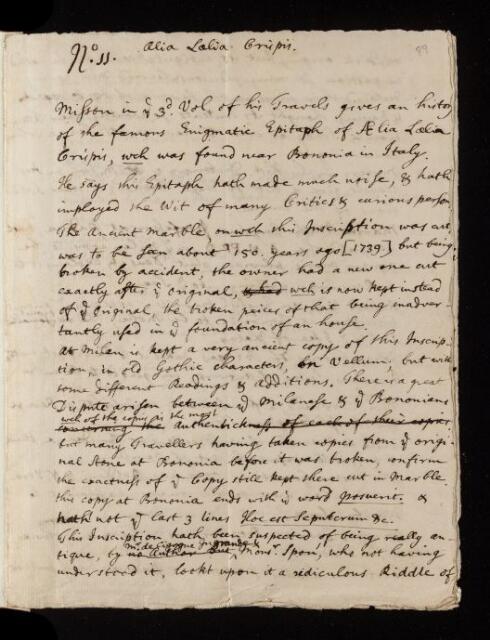 Nº. 11.
Ælia Lælia Crispis.
89
Misson in ÿ 3ᵈ. Vol. of his Travels gives an history
of the famous Enigmatic Epitaph of Ælia Lælia
Crispis, wch was found near Bononia in Italy.
He says this Epitaph hath made much noise, & hath
imployed the Wit of many Criticks & curious person
The Ancient Marble, on wch this Inscription was cut,
was to be seen about 150. years ago [1739] but being
broken by accident, the owner had a new one cut
exactly after ÿ original, & had wch is now kept instead
of ÿ original, the broken peices of that being inadver-
tantly used in ÿ foundation of an house.
At Milan is kept a very ancient copy of this Inscrip-
tion, in old Gothic characters, on Vellum, but with
some different Readings & additions. There is a great
Dispute arisen between ÿ Milanese & ÿ Bononians
wch of the copies is the most
concerning the authentickness of each of their copies.
but many Travellers having taken copies from ÿ origi-
nal Stone at Bononia before it was broken, confirm
the exactness of ÿ Copy still kept there cut in Marble.
this copy at Bononia ends with ÿ word posuerit. &
hath not ÿ last 3 lines Hoc est Sepulcrum &c.
This Inscription hath been suspected of being really an-
tique, by no Critics but Monsʳ. Spon, who not having
understood it, lookt upon it a rediculous Riddle of